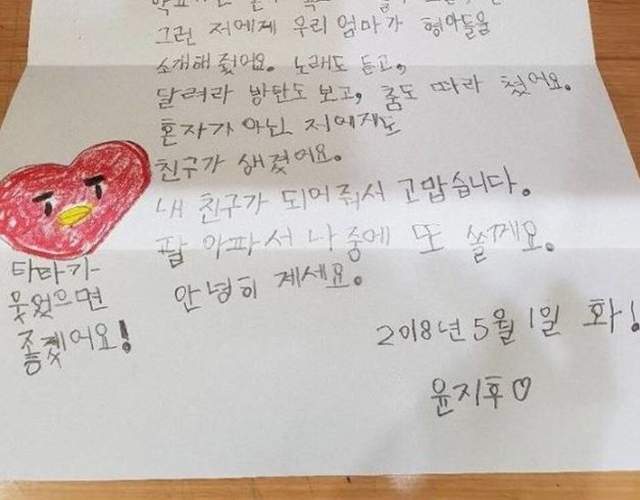 그런 저에게 우리 엄마가 형아들을
소개해 줬어요. 노래도 듣고,
달려라 방탄도 보고, 춤도 따라 췄어요.
혼자가 아닌 저에게도
친구가 생겼어요.
내 친구가 되어줘서 고맙습니다.
팔 아파서 나중에 또 쓸께요.
안녕히 계세요.
타타가
웃었으면
좋겠어요!
2018년 5월 1일 화!
윤지후♡